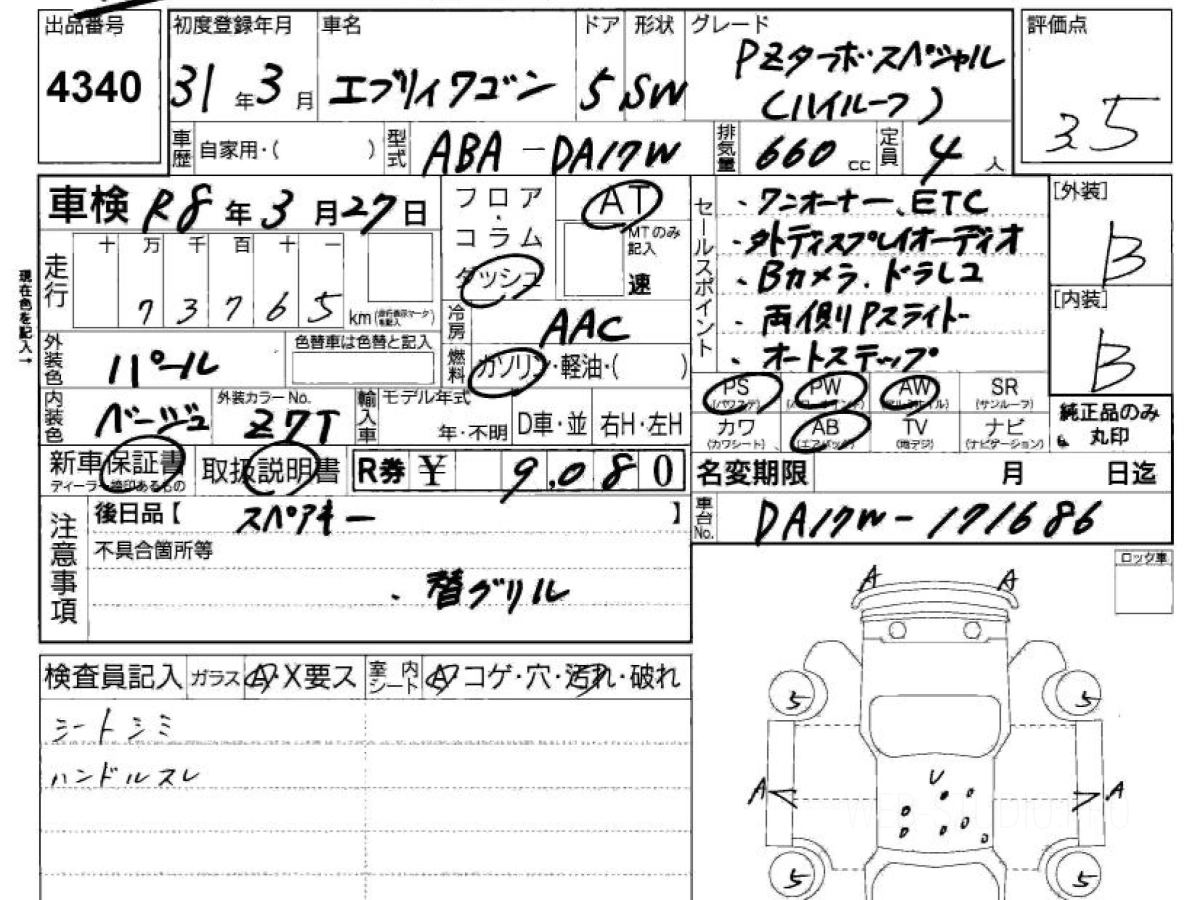 出品番号
4340
初度登録年月
31年3月
車名
エブリィワゴン
ドア
5
形状
SW
グレード
PZターボスペシャル
(ハイルーフ)
評価点
3.5
車歴
自家用・( )
型式
ABA-DA17W
排気量
660cc
定員
4人
車検 R8年3月27日
フロア・コラム
ダッシュ
AT
MTのみ記入
速
セールスポイント
・ワンオーナー、ETC
・外ディスプレイオーディオ
・Bカメラ、ドラレコ
・両側Pスライドー
・オートステップ
[外装]
B
[内装]
B
現在色を記入→
走行
十 万 千 百 十 一
7 3 7 6 5 km
(走行表示マークを記入)
冷房
AAC
外装色
パール
色替車は色替と記入
燃料
ガソリン・軽油・( )
内装色
ベージュ
外装カラーNo.
Z7T
輸入車
モデル年式
年・不明
D車・並
右H・左H
PS
(パワステ)
PW
(パワーウインド)
AW
(アルミホイル)
SR
(サンルーフ)
カワ
(カワシート)
AB
(エアバック)
TV
(地デジ)
ナビ
(ナビゲーション)
純正品のみ
丸印
新車保証書
ディーラー捺印あるもの
取扱説明書
R券 ¥ 9,080
名変期限 月 日迄
注意事項
後日品【 スペアキー 】
車台No.
DA17W-171686
不具合箇所等
・替グリル
ロック車
検査員記入
ガラス
A・X要ス
室内シート
A・コゲ・穴・汚れ・破れ
シートシミ
ハンドルスレ
A A
5 5
U
A A
5 5